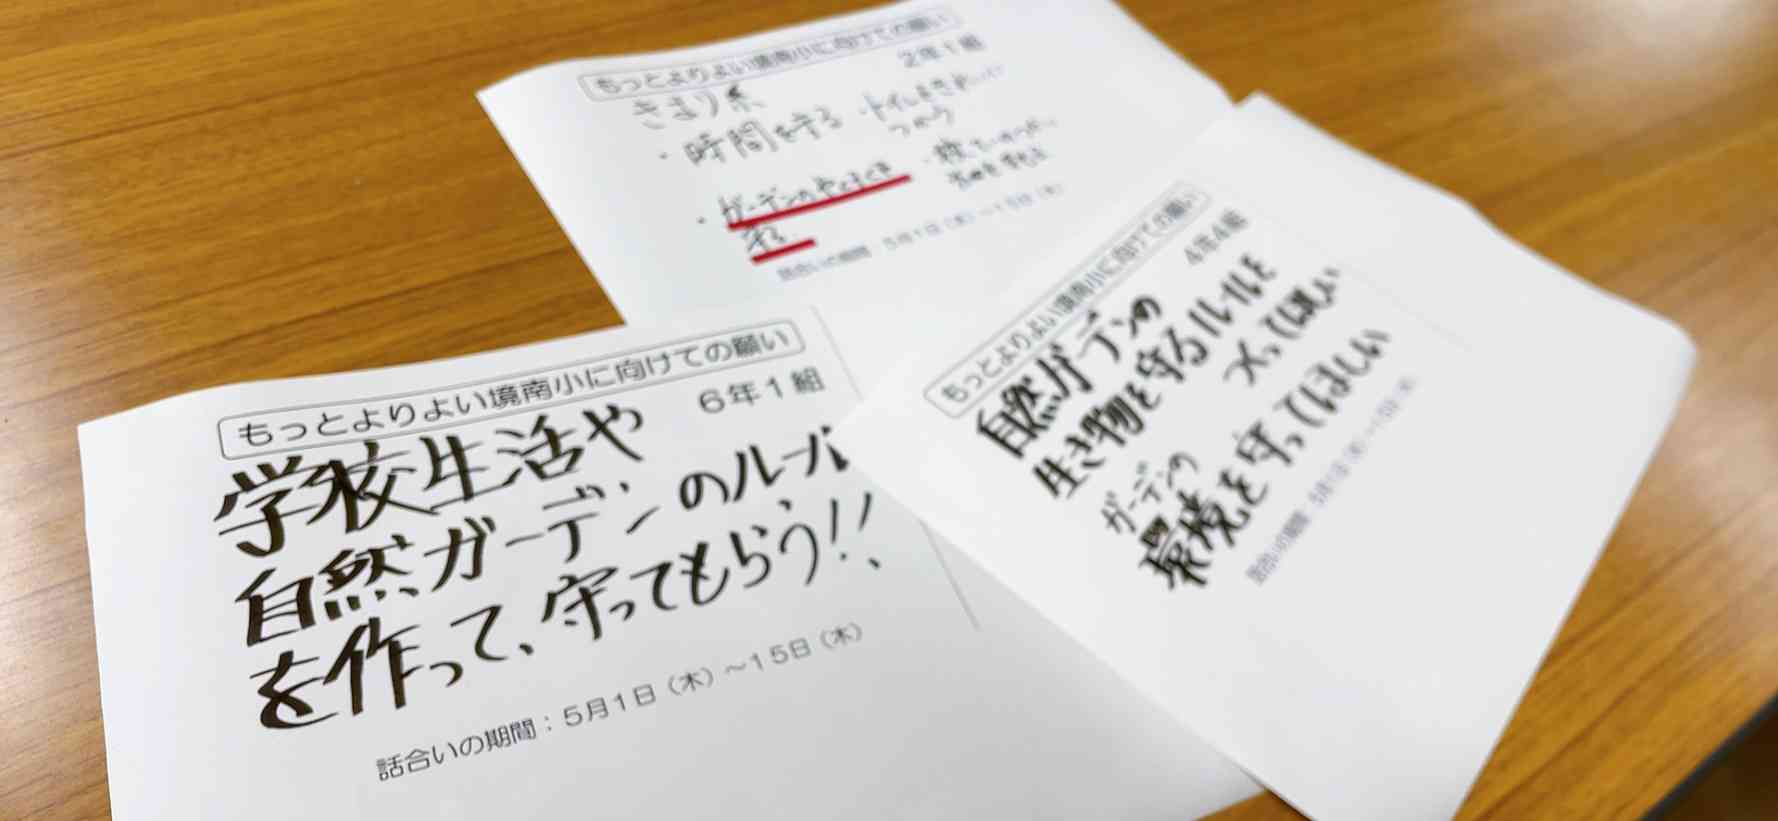 もっとよりよい境南小に向けての願い
2年1組
きまり系
・時間を守る
・トイレをきれいに
つかう
・ガーデンのやくそくを
守る
話合いの期間：5月1日（木）～15日（木）
もっとよりよい境南小に向けての願い
4年4組
自然ガーデンの
生き物を守るルールを
つくってほしい
ガーデンの
環境を守ってほしい
話合いの期間：5月1日（木）～15日（木）
もっとよりよい境南小に向けての願い
6年1組
学校生活や
自然ガーデンのルール
を作って、守ってもらう!!
話合いの期間：5月1日（木）～15日（木）